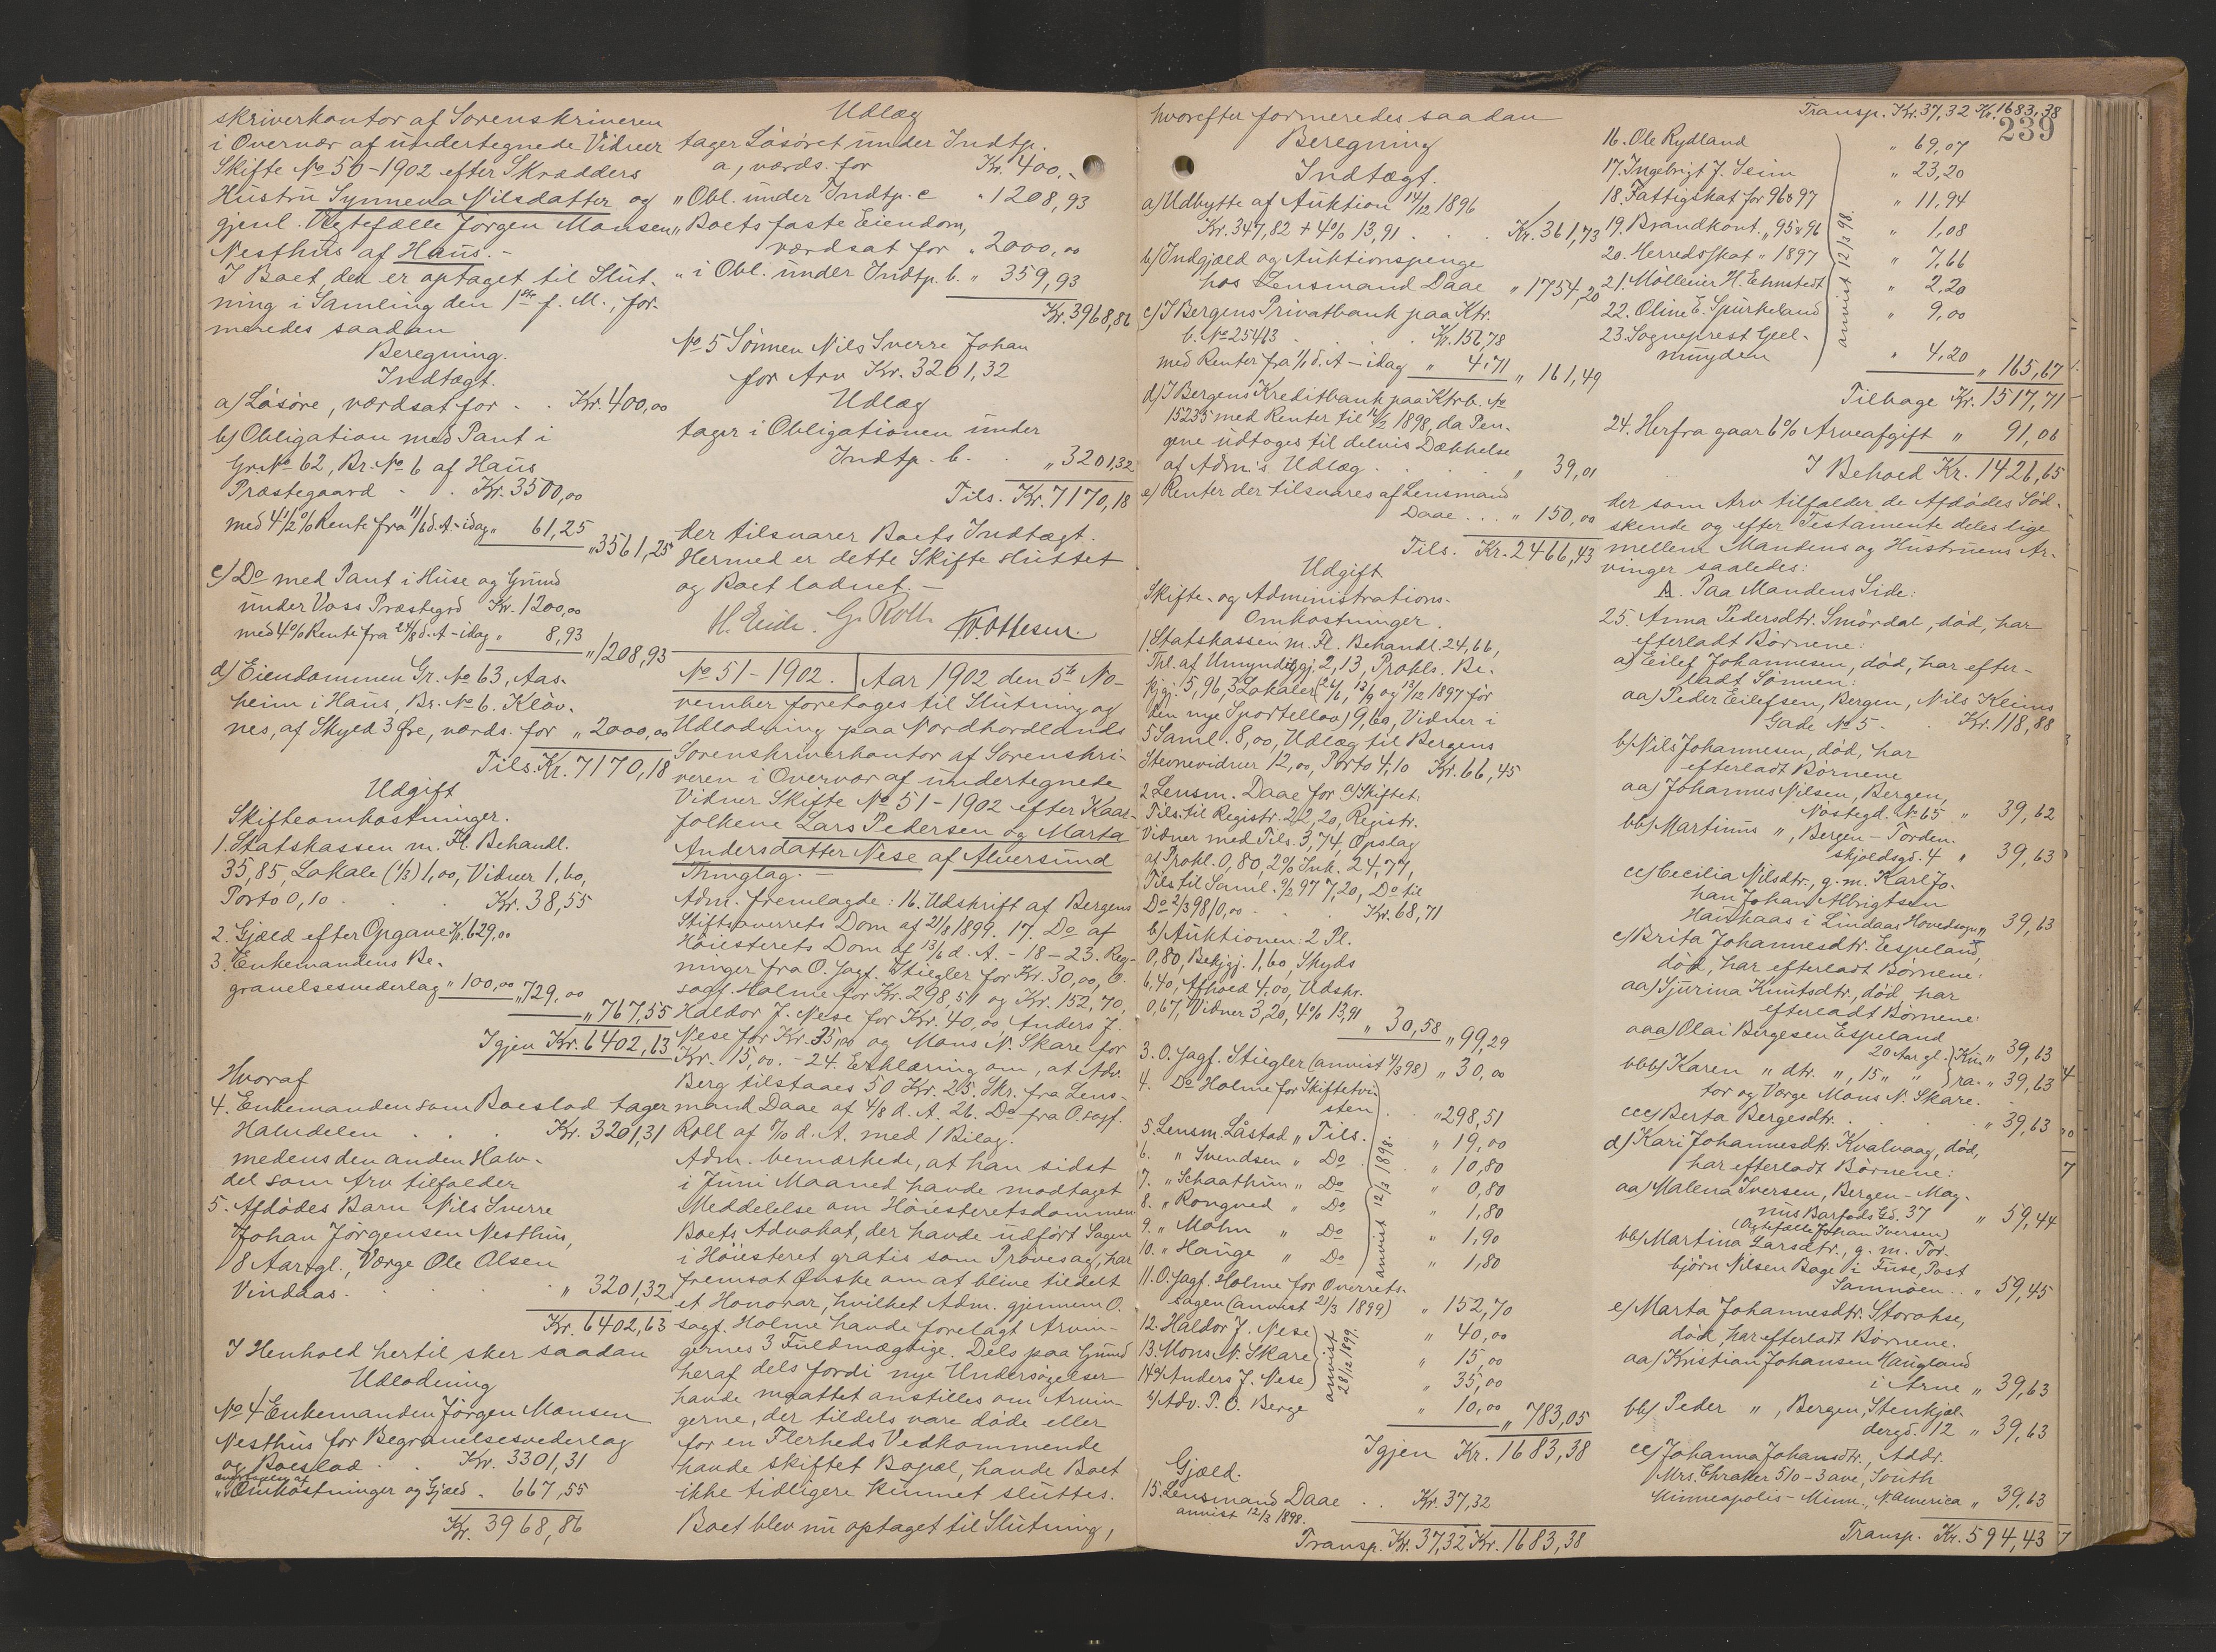 skriverkontor af Sorenskriveren
i Overvær af undertegnede Vidner
Skifte No 50-1902 efter Skrædders
Hustru Synneva Nilsdatter og
gjenl. Ægtefælle Jørgen Monsen
Nesthus af Haus.-
I Boet, der er optaget til Slut-
ning i Samling den 1ste f. M., for-
meredes saadan
Beregning.
Indtægt.
a) Løsøre, værdsat for . . Kr. 400,00
b) Obligation med Pant i
Gr. No 62, Br. No 6 af Haus
Præstegaard . . Kr. 3500,00
med 4½% Rente fra 11/6 d. A.-idag " 61,25
" 3561,25
c) Do med Pant i Huse og Grund
under Voss Præstegrd Kr. 1200,00
med 4% Rente fra 24/8 d. A-idag " 8,93
" 1208,93
d) Eiendommen Gr. No 63, Aas-
heim i Haus, Br. No 6. Kløv-
nes, af Skyld 3 Øre, værds. for " 2000,00
Tils. Kr. 7170,18
Udgift
Skifteomkostninger.
1. Statskassen m. Fl. Behandl.
35,85, Lokale (1/3) 1,00, Vidner 1,60,
Porto 0,10 . . . Kr. 38,55
2. Gjæld efter Opgave Kr. 629,00
3. Enkemandens Be-
gravelsesvederlag " 100,00 " 729,00
" 767,55
Igjen Kr. 6402,63
Hvoraf
4. Enkemanden som Boeslod tager
Halvdelen . . . Kr. 3201,31
medens den anden Halv-
del som Arv tilfalder
5. Afdødes Barn Nils Sverre
Johan Jørgensen Nesthus,
8 Aar gl., Værge Ole Olsen
Vindaas . . . " 3201,32
Kr. 6402,63
I Henhold hertil sker saadan
Udlodning
No 4 Enkemanden Jørgen Monsen
Nesthus for Begravelsesvederlag
og Boeslod . . Kr. 3301,31
" Omkostninger og Gjæld . 667,55
Kr. 3968,86
Udlæg
tager Løsøret under Indtp.
a, værds. for Kr. 400.-
" Obl. under Indtp. c " 1208,93
" Boets faste Eiendom,
værdsat for " 2000,00
" i Obl. under Indtp. b. " 359,93
Kr. 3968,86
No 5 Sønnen Nils Sverre Johan
for Arv Kr. 3201,32
Udlæg
tager i Obligationen under
Indtp. b. . " 3201,32
Tils. Kr. 7170,18
der tilsvarer Boets Indtægt.
Hermed er dette Skifte sluttet
og Boet lodnet.-
H. Eide. G. Roll.
No 51-1902. Aar 1902 den 5te No-
vember foretoges til Slutning og
Udlodning paa Nordhordlands
Sorenskriverkontor af Sorenskri-
veren i Overvær af undertegnede
Vidner Skifte No 51-1902 efter Kaar-
folkene Lars Pedersen og Marta
Andersdatter Nese af Alversund
Thinglag.-
Adm. fremlagde: 16. Udskrift af Bergens
Stiftsoverrets Dom af 21/8 1899. 17. Do af
Høiesterets Dom af 13/6 d. A. - 18-23. Reg-
ninger fra O. sagf. Stiegler for Kr. 30,00, O.
sagf. Holme for Kr. 298,51 og Kr. 152,70,
Haldor J. Nese for Kr. 40,00, Anders J.
Nese for Kr. 35,00 og Mons N. Skare for
Kr. 15,00. - 24. Erklæring om, at Adv.
Berg tilstaaes 50 Kr. 25. Skr. fra Lens-
mand Daae af 4/8 d. A. 26. Do fra O. sagf.
Roll af 9/10 d. A. med 1 Bilag.
Adm. bemærkede, at han sidst
i Juni Maaned havde modtaget
Meddelelse om Høiesteretsdommen.
Boets Advokat, der havde udført Sagen
i Høiesteret gratis som Prøvesag, har
fremsat Ønske om at blive tildelt
et Honorar, hvilket Adm. gjennem O.
sagf. Holme havde forelagt Arvin-
gernes 3 Fuldmægtige. Dels paa Grund
heraf dels fordi nye Undersøgelser
havde maattet anstilles om Arvin-
gerne, der tildels vare døde eller
for en Flerheds Vedkommende
havde skiftet Bopæl, havde Boet
ikke tidligere kunnet sluttes.
Boet blev nu optaget til Slutning,
hvorefter formeredes saadan
Beregning
Indtægt.
a) Udbytte af Auktion 14/12 1896
Kr. 347,82 + 4% 13,91 . . . Kr. 361,73
b) Indgjæld og Auktionspenge
hos Lensmand Daae " 1754,20
c) I Bergens Privatbank paa Ktr.
b. No 25463 . . . Kr. 156,78
med Renter fra 1/1 d. A-idag " 4,71 " 161,49
d) I Bergens Kreditbank paa Ktrb. No
15235 med Renter til 12/2 1898, da Pen-
gene udtoges til delvis Dækkelse
af Adm's Udlæg . . . " 39,01
e) Renter der tilsvares af Lensmand
Daae . . . " 150,00
Tils. Kr. 2466,43
Udgift
Skifte- og Administrations-
Omkostninger.
1. Statskassen m. Fl. Behandl. 24,66,
Tpl. af Umyndiggj. 2,13, Prokls. Be-
kjgj. 5,96, 3 Lokaler (26/6, 13/9 og 13/12 1897 før
den nye Sportellov) 9,60, Vidner i
5 Saml. 8,00, Udlæg til Bergens
Stevnevidner 12,00, Porto 4,10 Kr. 66,45
2 Lensm. Daae for a) Skiftet:
Tils. til Registr. 22,20, Registr.
Vidner med Tils. 3,74, Opslag
af Prokl. 0,80, 2% Ink. 24,77,
Tils til Saml. 9/2 97 7,20, Do til
Do 2/3 98 10,00 . . . Kr. 68,71
b) Auktionen: 2 Pl.
0,80, Bekjgj. 1,60, Skyds
6,40, Afhold 4,00, Udskr.
0,67, Vidner 3,20, 4% 13,91
" 30,58 " 99,29
3. O. sagf. Stiegler (anvist 4/3 98) " 30,00
4. Do Holme for Skiftetvi-
sten . . " 298,51
5. Lensm. Låstad " Tils. " 19,00
6. " Svendsen " Do . . " 10,80
7. " Schaathun " Do " 0,80
8. " Rongved " Do " 1,80
9. " Mohn " Do " 1,90
10. " Hauge " Do " 1,80
anvist 12/3 1898.
11. O. sagf. Holme for Overrets-
sagen (anvist 21/3 1899) " 152,70
12. Haldor J. Nese " 40,00
13. Mons N. Skare " 15,00
14 a) Anders J. Nese " 35,00
anvist 28/12 1899.
b) Adv. P. O. Berge " 10,00
" 783,05
Igjen Kr. 1683,38
Gjæld.
15. Lensmand Daae . . Kr. 37,32
anvist 12/3 1898.
Transp. Kr. 37,32 Kr. 1683,38
Transp. Kr. 37,32 Kr. 1683,38
239
16. Ole Rydland " 69,07
17. Ingebrigt J. Seim " 23,20
18. Fattigskat for 96 & 97 " 11,94
19. Brandkont. " 95 & 96 " 1,08
20. Herredsskat " 1897 " 7,66
21. Møllerier H. Ehmstedt " 2,20
22. Oline E. Spurkeland " 9,00
23. Sogneprest Geel-
muyden " 4,20 " 165,67
anvist 12/3 98.
Tilbage Kr. 1517,71
24. Herfra gaar 6% Arveafgift " 91,06
I Behold Kr. 1426,65
der som Arv tilfalder de Afdødes Sød-
skende og efter Testamente deles lige
mellem Mandens og Hustruens Ar-
vinger saaledes:
A. Paa Mandens Side:
25. Anna Pedersdtr. Smørdal, død, har
efterladt Børnene:
a) Eilef Johannesen, død, har efter-
ladt Sønnen:
aa) Peder Eilefsen, Bergen, Nils Kleims
Gade No 5 . . Kr. 118,88
b) Nils Johannesen, død, har
efterladt Børnene
aa) Johannes Nilsen, Bergen,
Nøstegd. No 65 " 39,62
bb) Martinus " , Bergen - Torden-
skjoldsgd. 4 " 39,63
cc) Cecilia Nilsdtr., g. m. Karl Jo-
han Johan Albrigtsen
Haukaas i Lindaas Hovedsogn " 39,63
c) Brita Johannesdtr. Espeland,
død, har efterladt Børnene:
aa) Sjurina Knutsdtr., død, har
efterladt Børnene:
aaa) Olai Bergesen Espeland
20 Aar gl. Ku- " 39,63
bbb) Karen " dtr. ", 15 " " ra- " 39,63
tor og Værge Mons N. Skare.
ccc) Berta Bergesdtr. . . . " 39,63
d) Kari Johannesdtr. Kvalvaag, død,
har efterladt Børnene:
aa) Malena Iversen, Bergen - Mag-
nus Barfods Gd. 37 " 59,44
(Ægtefælle Johan Iversen)
bb) Martina Larsdtr., g. m. Tor-
bjørn Nilsen Bage i Fuse, Post
Samnøen . . " 59,45
e) Marta Johannesdtr. Storokse,
død, har efterladt Børnene.
aa) Kristian Johansen Haugland
i Arne " 39,63
bb) Peder " , Bergen, Stenkjel-
dergd. 12 " 39,63
cc) Johanna Johansdtr., Addr.
Mrs. Thraker 510-3 ave, South
Minneapolis - Minn., N. America " 39,63
Transp. Kr. 594,43